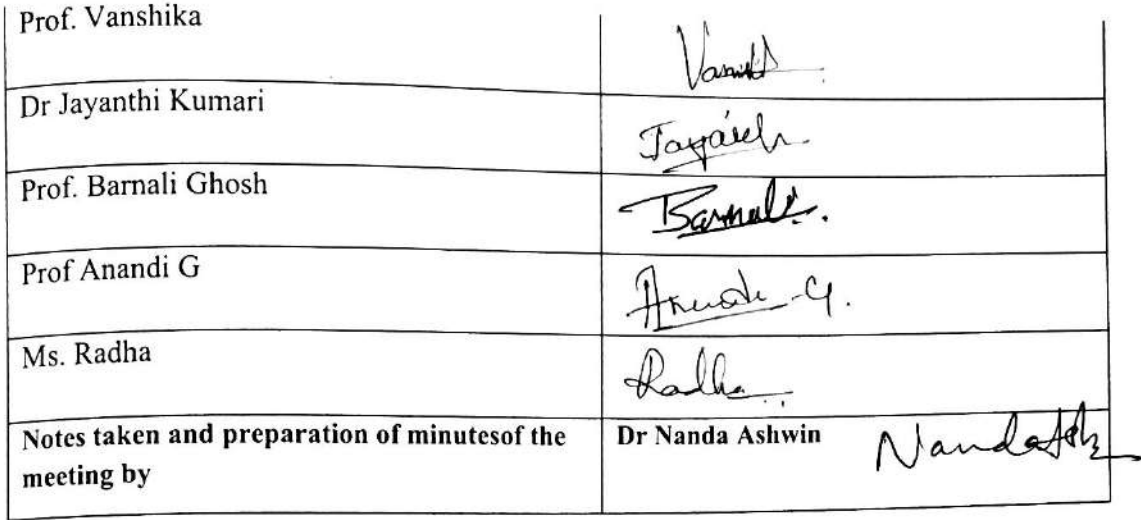 Prof. Vanshika
Dr Jayanthi Kumari
Prof. Barnali Ghosh
Barnali.
Prof Anandi G
Ms. Radha
Radha
Notes taken and preparation of minutesof the
meeting by
Dr Nanda Ashwin